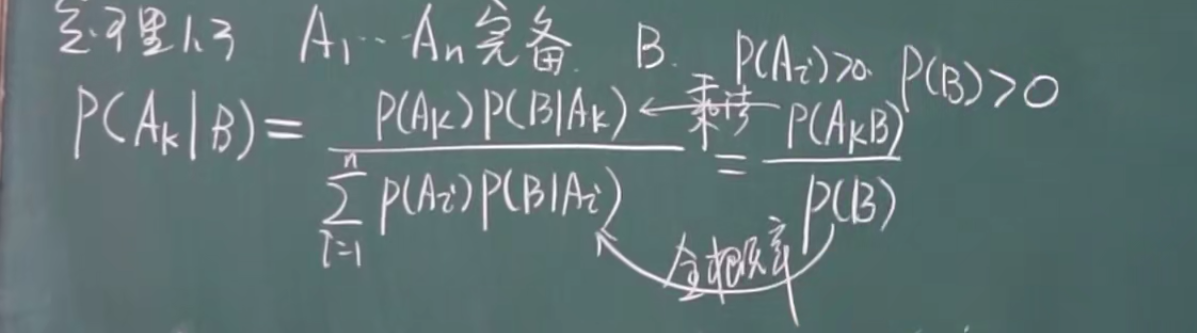 定理1.3 A₁…Aₙ完备. B. P(Aᵢ)>0. P(B)>0
P(Aₖ|B)= P(Aₖ)P(B|Aₖ) / ∑ᵢ₌₁ⁿ P(Aᵢ)P(B|Aᵢ) = P(AₖB) / P(B)
乘法
全概率